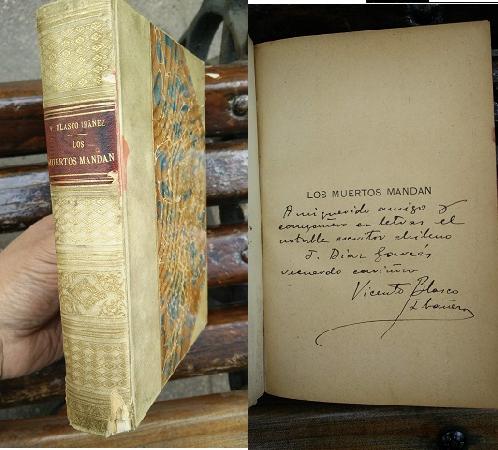 V. BLASCO IBÁÑEZ
LOS
MUERTOS MANDAN
LOS MUERTOS MANDAN
A mi querido amigo y
compañero en letras el
notable escritor chileno
J. Díaz Garcés
recuerdo cariñoso
Vicente Blasco
Ibáñez